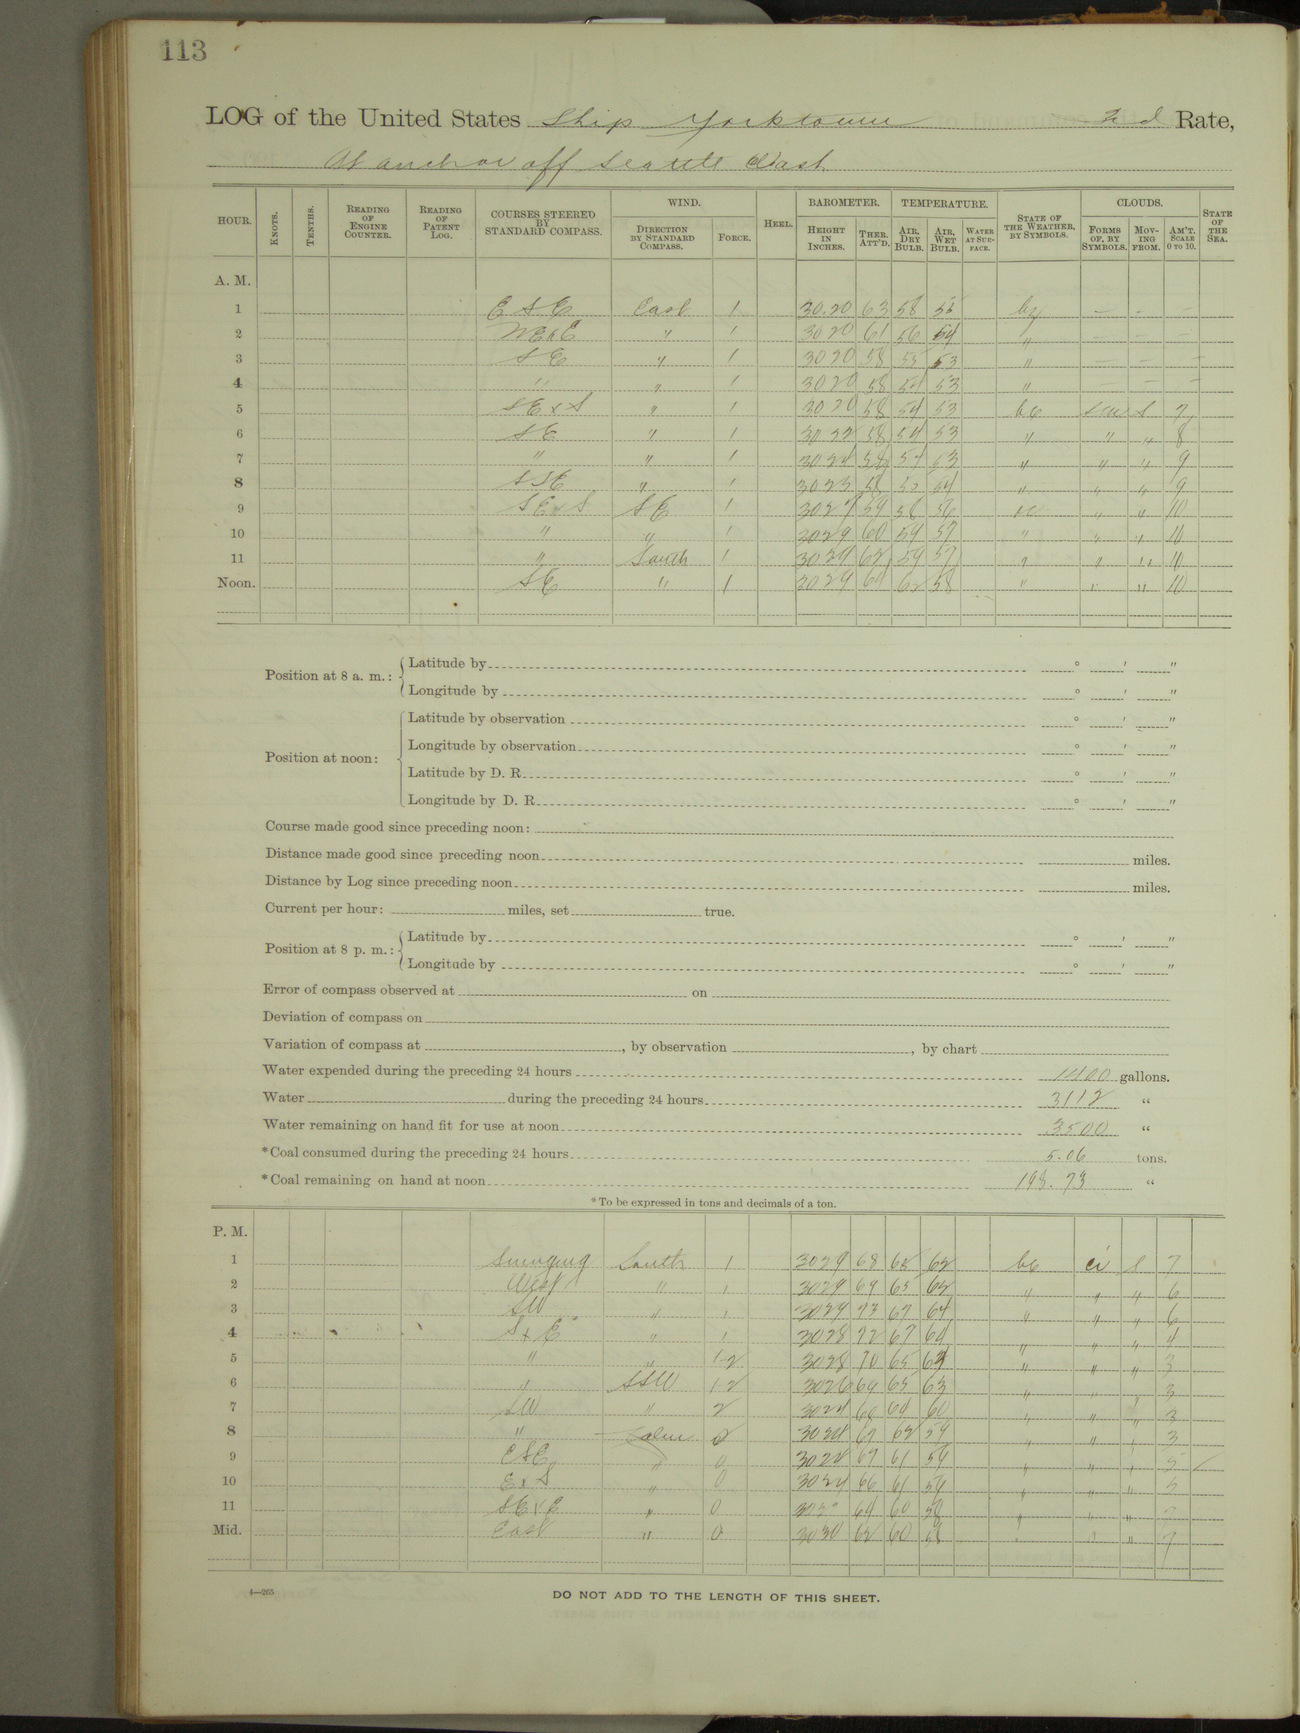 113
LOG of the United States Ship Yorktown 3d Rate,
At anchor off Seattle Wash
HOUR. KNOTS. TENTHS. READING OF ENGINE COUNTER. READING OF PATENT LOG. COURSES STEERED BY STANDARD COMPASS. WIND. DIRECTION BY STANDARD COMPASS. FORCE. HEEL. BAROMETER. HEIGHT IN INCHES. THER. ATT'D. TEMPERATURE. AIR, DRY BULB. AIR, WET BULB. WATER AT SURFACE. STATE OF THE WEATHER, BY SYMBOLS. CLOUDS. FORMS OF, BY SYMBOLS. MOVING FROM. AM'T. SCALE 0 TO 10. STATE OF THE SEA.
A. M.
1 ESE East 1 30.20 63 58 55 - - -
2 " 1 3020 61 56 54 " - - -
3 SE " 1 3020 58 55 53 " - - -
4 " " 1 3020 58 54 53 " - - -
5 SExS " 1 3020 58 54 53 bc S 7
6 SE " 1 3022 58 54 53 " " " 8
7 " " 1 3024 58 54 53 " " " 9
8 SSE " 1 3025 58 55 54 " " " 9
9 SExS SE 1 3027 59 56 56 " " 10
10 " " 1 3029 60 59 57 " " " 10
11 " South 1 3029 62 59 57 " " " 10
Noon. SE " 1 3029 64 62 58 " " " 10
Position at 8 a. m.: Latitude by ° ' "
Longitude by ° ' "
Position at noon: Latitude by observation ° ' "
Longitude by observation ° ' "
Latitude by D. R. ° ' "
Longitude by D. R. ° ' "
Course made good since preceding noon:
Distance made good since preceding noon miles.
Distance by Log since preceding noon miles.
Current per hour: miles, set true.
Position at 8 p. m.: Latitude by ° ' "
Longitude by ° ' "
Error of compass observed at on
Deviation of compass on
Variation of compass at , by observation , by chart
Water expended during the preceding 24 hours 1400 gallons.
Water during the preceding 24 hours 3112 "
Water remaining on hand fit for use at noon 3500 "
*Coal consumed during the preceding 24 hours 5.06 tons.
*Coal remaining on hand at noon 193.73 "
*To be expressed in tons and decimals of a ton.
P. M.
1 Swinging South 1 3029 68 65 62 bc ci S 7
2 West " 1 3029 69 65 62 " " " 6
3 SW " 1 3029 73 67 64 " " " 6
4 SxE " 1 3028 72 67 64 " " " 4
5 " " 1-2 3028 70 65 63 " " " 3
6 " SSW 1-2 3026 69 65 63 " " " 3
7 SW " 2 3024 68 64 60 " " " 3
8 " Calm 0 3024 67 62 59 " " " 3
9 ESE " 0 3022 67 61 59 " " " 5
10 ExS " 0 3024 66 61 59 " " " 5
11 SExE " 0 64 60 58 " " "
Mid. East " 0 3030 62 60 58 " " " 7
4—265
DO NOT ADD TO THE LENGTH OF THIS SHEET.